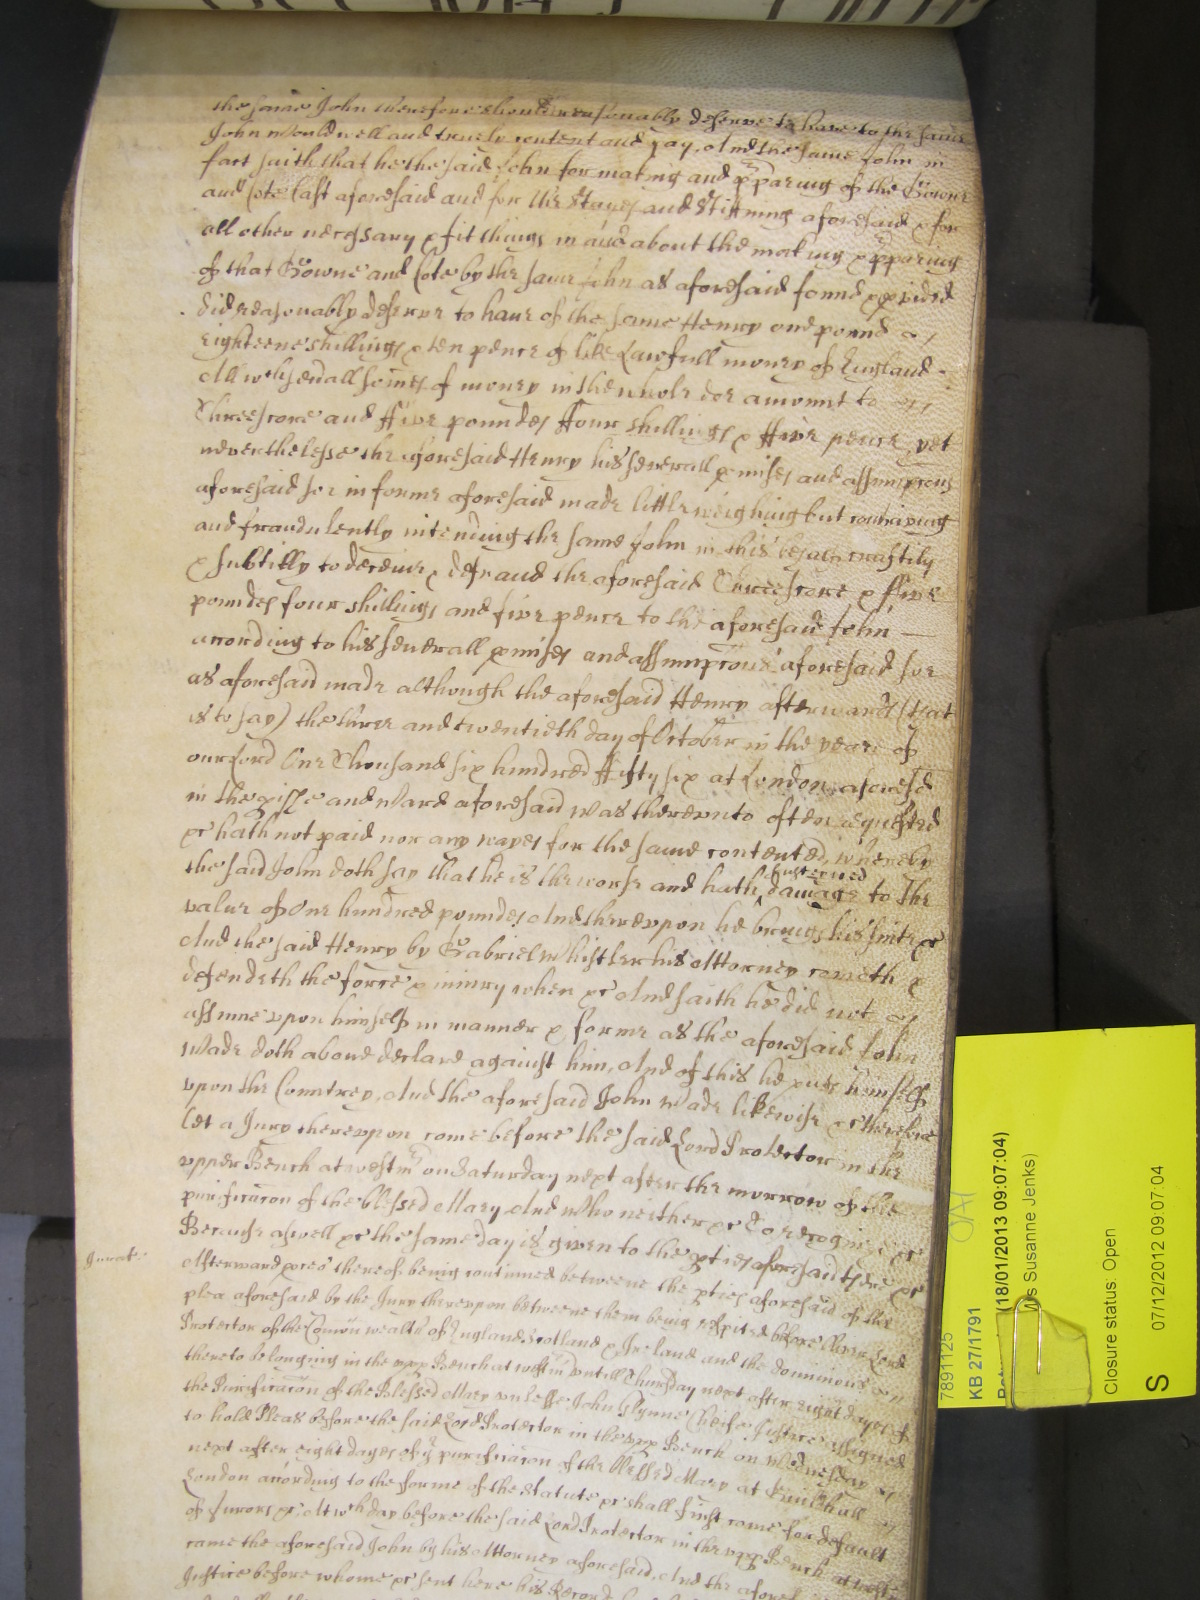 the same John therefore should reasonably deserve to have to the same
John would well and truely content and pay, And the same John in
fact saith that he the said John for making and pparing of the Gowne
and Cote last aforesaid and for the Stayes and Stiffning aforesaid & for
all other necessary & fit things in and about the making & pparing
of that Gowne and Cote by the same John as aforesaid found & pvided
did reasonably deserve to have of the same Henry one pound
eighteene shillings & ten pence of like Lawfull money of England
All wch severall somes of money in the whole doe amount to
Threescore and ffive poundes ffour shillings & ffive pence yet
neverthelesse the aforesaid Henry his severall pmises and assumpcons
aforesaid soe in forme aforesaid made little weighing but contriving
and fraudulently intending the same John in this behalfe craftily
& subtilly to deceive & defraud the aforesaid Threescore & ffive
poundes four shillings and five pence to the aforesaid John
according to his severall pmises and assumpcons aforesaid soe
as aforesaid made although the aforesaid Henry afterwards (that
is to say) the three and twentieth day of October in the yeare of
our Lord One Thousand six hundred ffifty six at London aforesd
in the pishe and Ward aforesaid was thereunto often requested
&c hath not paid nor any wayes for the same contented, whereby
the said John doth say that he is the worse and hath susteyned damage to the
value of One hundred poundes And thereupon he brings his suite &c
And the said Henry by Gabriel Whistler his Attorney cometh &
defendeth the force & iniury when &c And saith he did not
assume upon himself in manner & forme as the aforesaid John
Wade doth above declare against him, And of this he puts himself
upon the Countrey, And the aforesaid John Wade likewise &c therefore
let a Jury thereupon come before the said Lord Protector in the
upper Bench at westmr on Saturday next after the morrow of the
purificacon of the blessed Mary And who neither &c To recognise &c
Because aswell &c the same day is given to the pties aforesaid there &c
Jurat
Afterward pces thereof being continued betweene the pties aforesaid of the
plea aforesaid by the Jury thereupon betweene them being respited before Lord
Protector of the Comon wealth of England Scotland & Ireland and the dominions
thereto belonging in the upp Bench at westmr untill Thursday next after eight dayes of
the Purificacon of the Blessed Mary unlesse John Glynne Cheife Justice assigned
to hold Pleas before the said Lord Protector in the upp Bench on Wednesday
next after eight dayes of ye purificacon of the blessed Mary at Guildhall
London according to the forme of the Statute &c shall first come for default
of Jurors &c, At wch day before the said Lord Protector in the upp Bench at westmr
came the aforesaid John by his Attorney aforesaid, And the aforesd
Justice before whome &c sent here his Record
7891125
KB 27/1791
(18/01/2013 09:07:04)
s Susanne Jenks)
Closure status: Open
S 07/12/2012 09:07:04